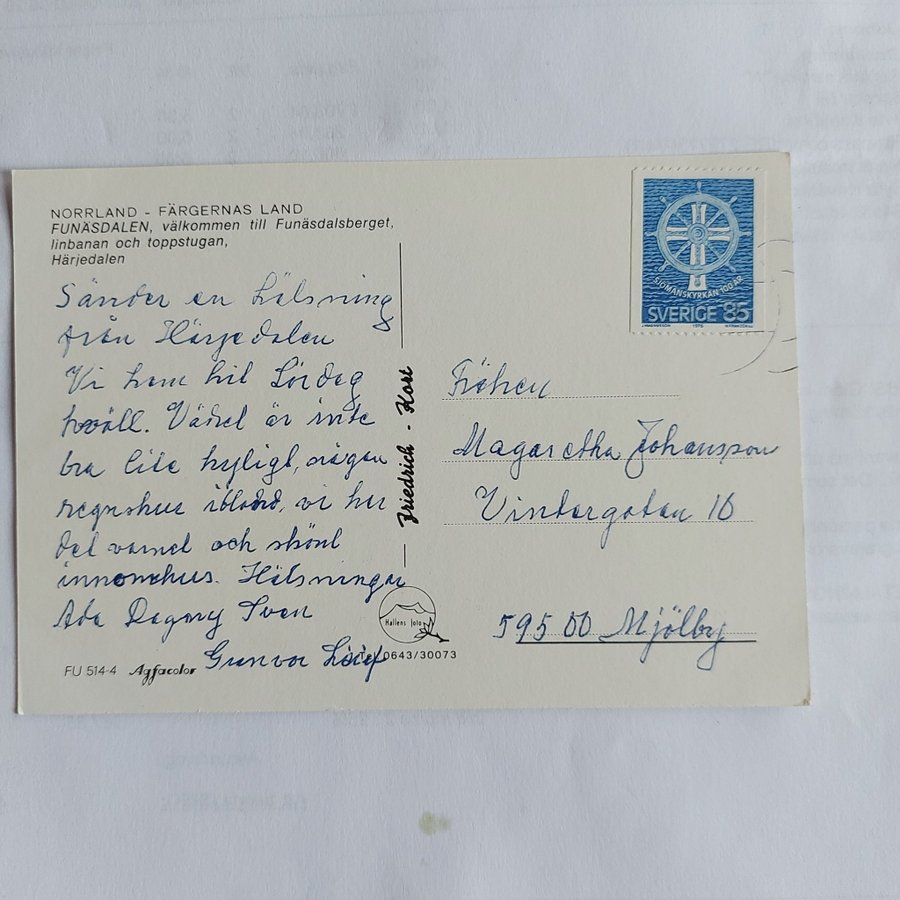 NORRLAND - FÄRGERNAS LAND
FUNÄSDALEN, välkommen till Funäsdalsberget,
linbanan och toppstugan,
Härjedalen
Sänder en Hälsning
från Härjedalen
Vi kom hit Lördag
kväll. Vädret är inte
bra lite kyligt, någon
regnskur ibland, vi har
det varmt och skönt
innomhus. Hälsningar
Ada Dagny Sven
Gunvor
FU 514-4 Agfacolor
Friedrich - Kort
Hallens foto
Tel. 0643/30073
SJÖMANSKYRKAN 100 ÅR
SVERIGE 85
1976
Fröken
Magaretha Johansson
Vintergatan 10
595 00 Mjölby